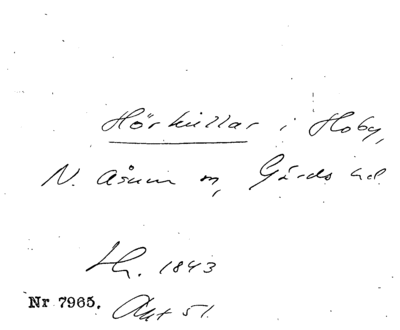 Hörkullar i Hoby,
N. Åsum sn, Gärds hd.
Lh. 1843
Nr 7965. Akt 51.